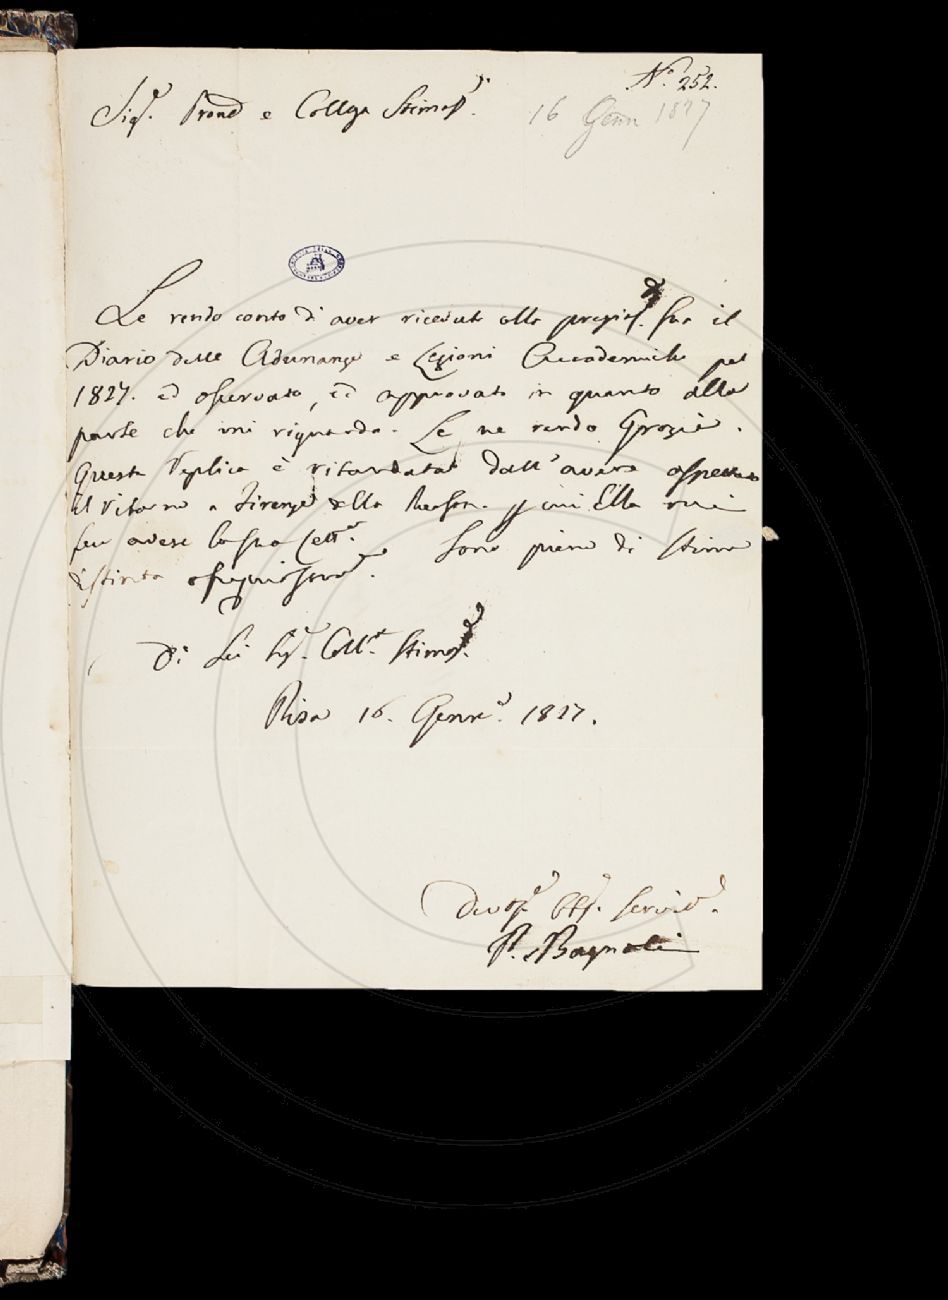 N.° 252.
Sig.e Prone e Collega Stimos.
16 Genn 1827
Le rendo conto di aver ricevuto colla pregias. sua il
Diario delle Adunanze e Lezioni Accademiche pel
1827. ed osservato, ed approvato in quanto alla
parte che mi riguarda. Le ne rendo Grazie.
Questa Replica è ritardata dall'avere aspettato
il ritorno a Firenze della per cui Ella mi
fece avere la sua Lett.a Sono pieno di stima
distinta
Di Lei Sig. Coll.a Stimos.
Pisa 16. Genn.o 1827.
Devos. Obb. Servid.e
P. Bagnoli